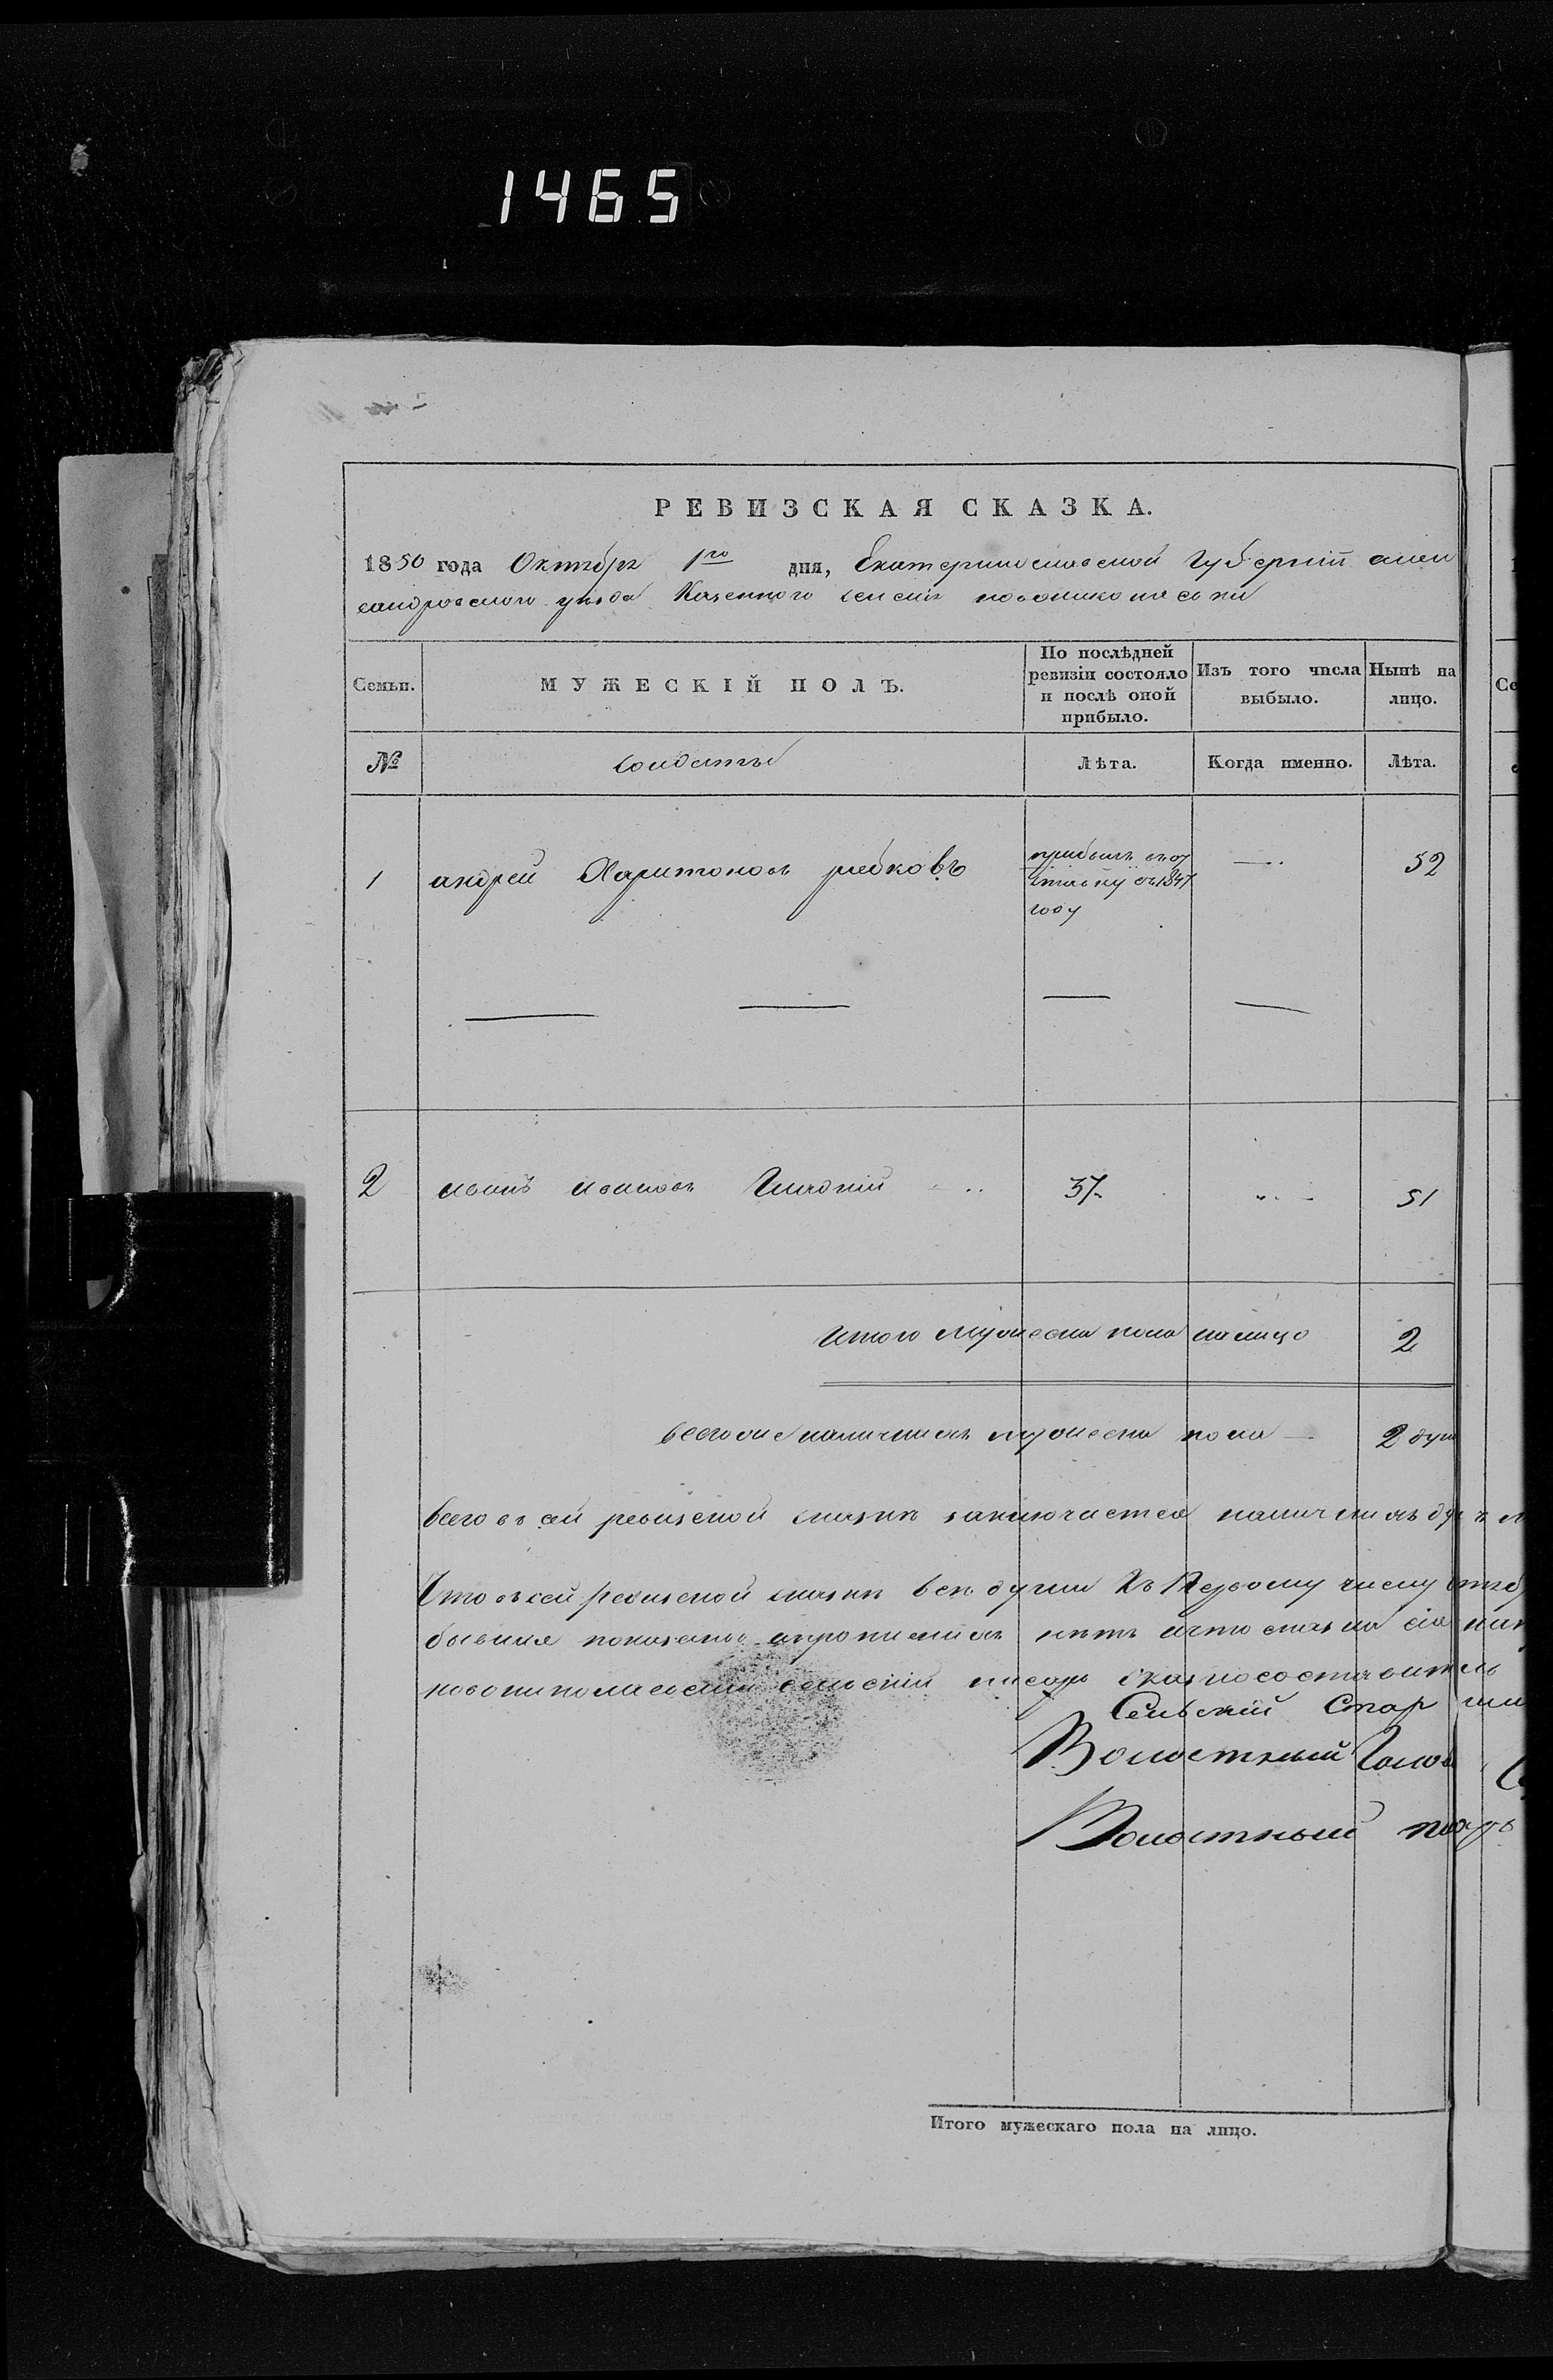 1465
РЕВИЗСКАЯ СКАЗКА.
1850 года Октября 1го дня, Екатеринославской Губернiи алек
сандровского уезда Казенного селенiя новониколаевки
Семьи.
МУЖЕСКIЙ ПОЛЪ.
По послѣдней ревизiи состояло и послѣ оной прибыло.
Изъ того числа выбыло.
Нынѣ на лицо.
№
солдаты
Лѣта.
Когда именно.
Лѣта.
1 андрей Харитоновъ рябковъ
прибылъ въ от
ставку въ 1847
году
52
2 иванъ ивановъ Гладкiй 37 51
итого мужеска пола налицо 2
всего же наличныхъ мужеска пола 2 душ
Всего въ сей ревизской сказкѣ заключается наличныхъ
Что въ сей ревизской сказкѣ всѣ души Къ Первому числу
показаны ипрописныхъ нѣтъ ичто сказка сiя
новониколаевскiй сельскiй писарь сказкосоставитель
Сельскiй Стар
Волостный Голова
Волостный писарь
Итого мужескаго пола на лицо.